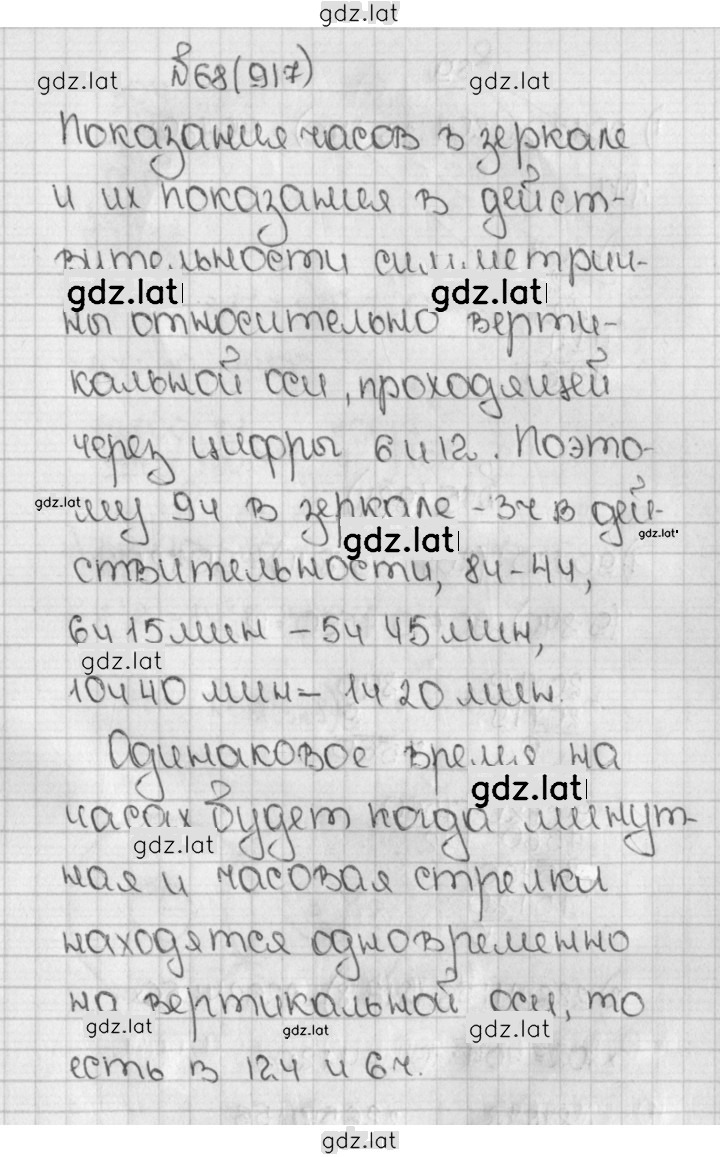 gdz.lat
№68(917)
gdz.lat gdz.lat
Показания часов в зеркале
и их показания в дейст-
вительности симметрич-
gdz.lat gdz.lat
ны относительно верти-
кальной оси, проходящей
через цифры 6 и 12. Поэто-
gdz.lat му 9ч в зеркале - 3ч в дей-
gdz.lat gdz.lat
ствительности, 8ч - 4ч,
6ч 15 мин - 5ч 45 мин,
gdz.lat
10ч 40 мин - 1ч 20 мин.
Одинаковое время на
gdz.lat
часах будет когда минут-
gdz.lat
ная и часовая стрелки
находятся одновременно
на вертикальной оси, то
gdz.lat gdz.lat gdz.lat
есть в 12ч и 6ч.
gdz.lat